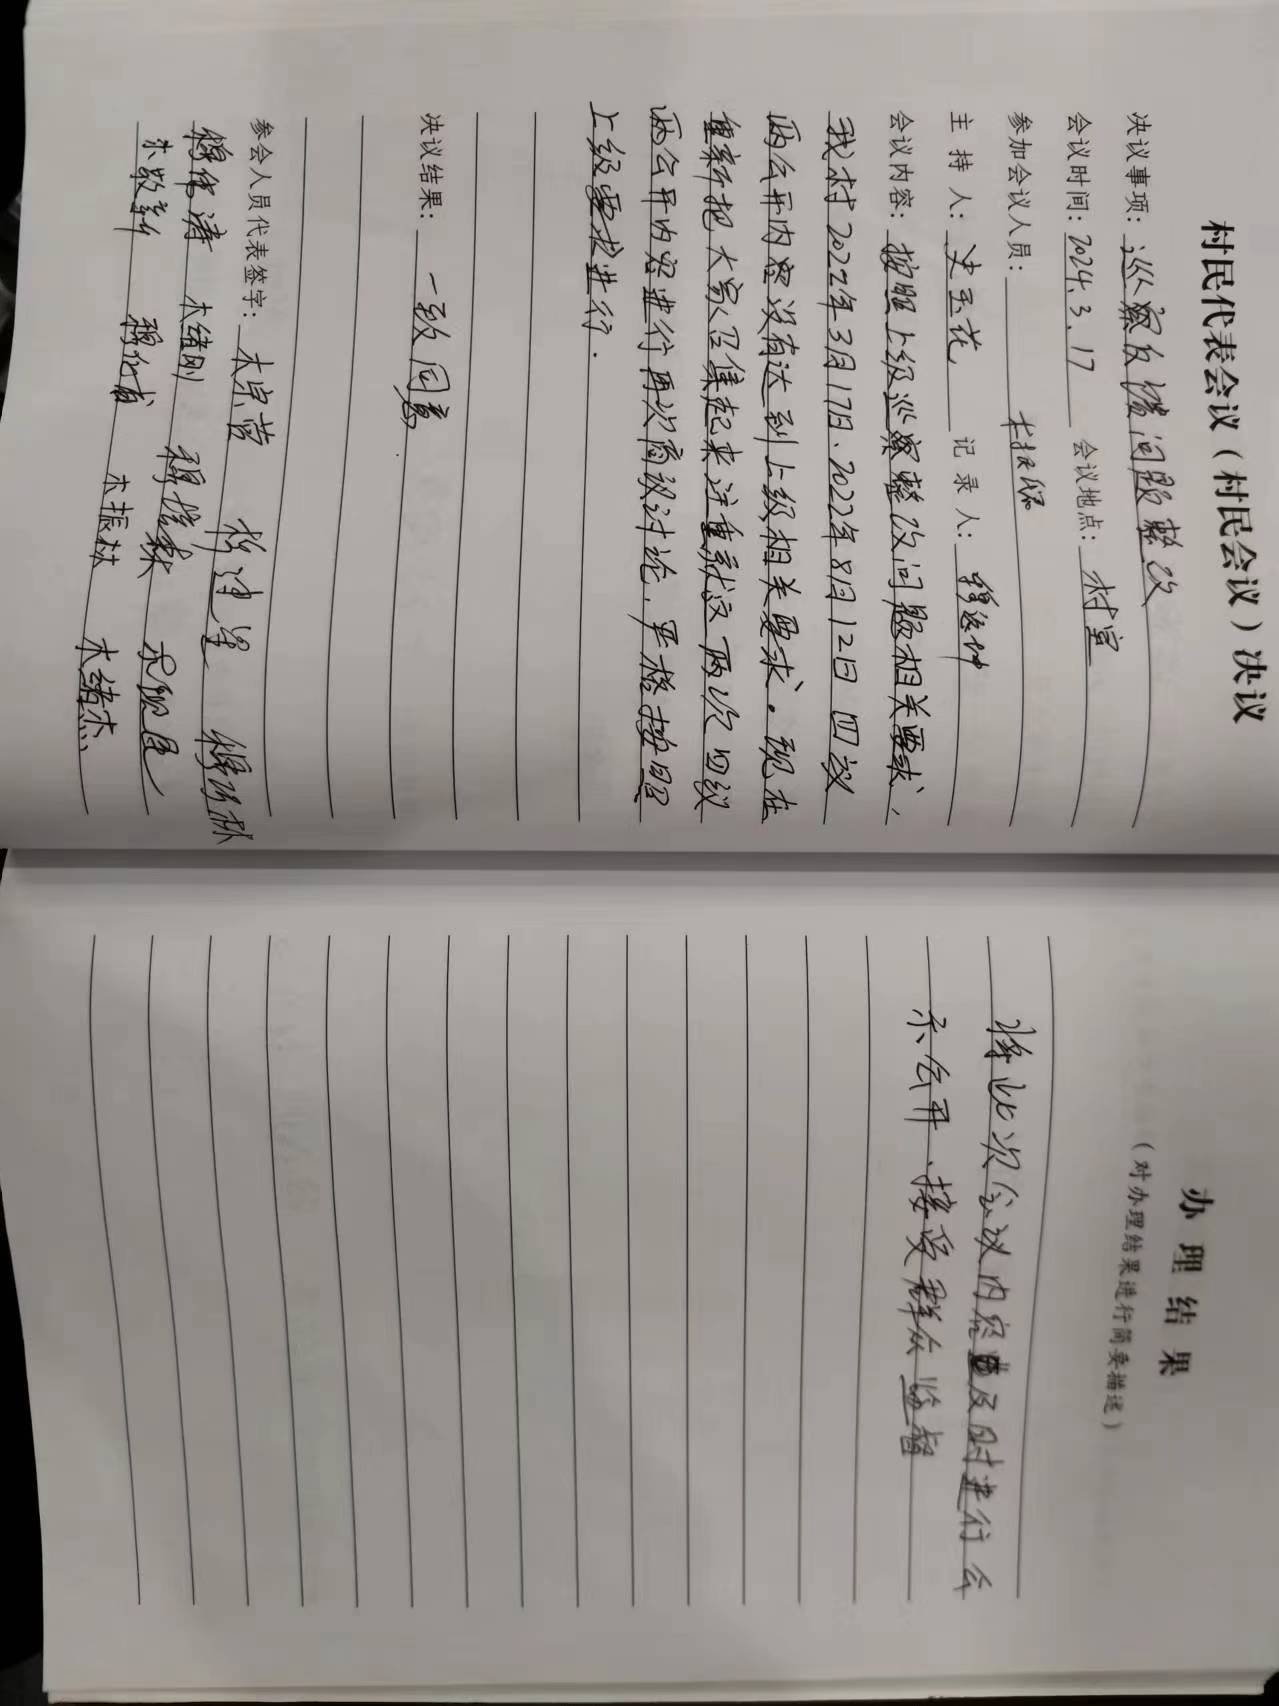 村民代表会议（村民会议）决议
决议事项：巡察反馈问题整改
会议时间：2024.3.17 会议地点：村室
参加会议人员：
主 持 人：史玉花 记 录 人：
会议内容：按照上级巡察整改问题相关要求，
我村2022年3月17日、2022年8月12日四议
两公开内容没有达到上级相关要求。现在
重新把大家召集起来注重就这两次四议
两公开内容进行再次商议讨论，严格按照
上级要求进行．
决议结果：一致同意
参会人员代表签字：
木绪刚
木振林 木绪杰
办理结果
（对办理结果进行简要描述）
将此次会议内容及时进行公
示公开、接受群众监督